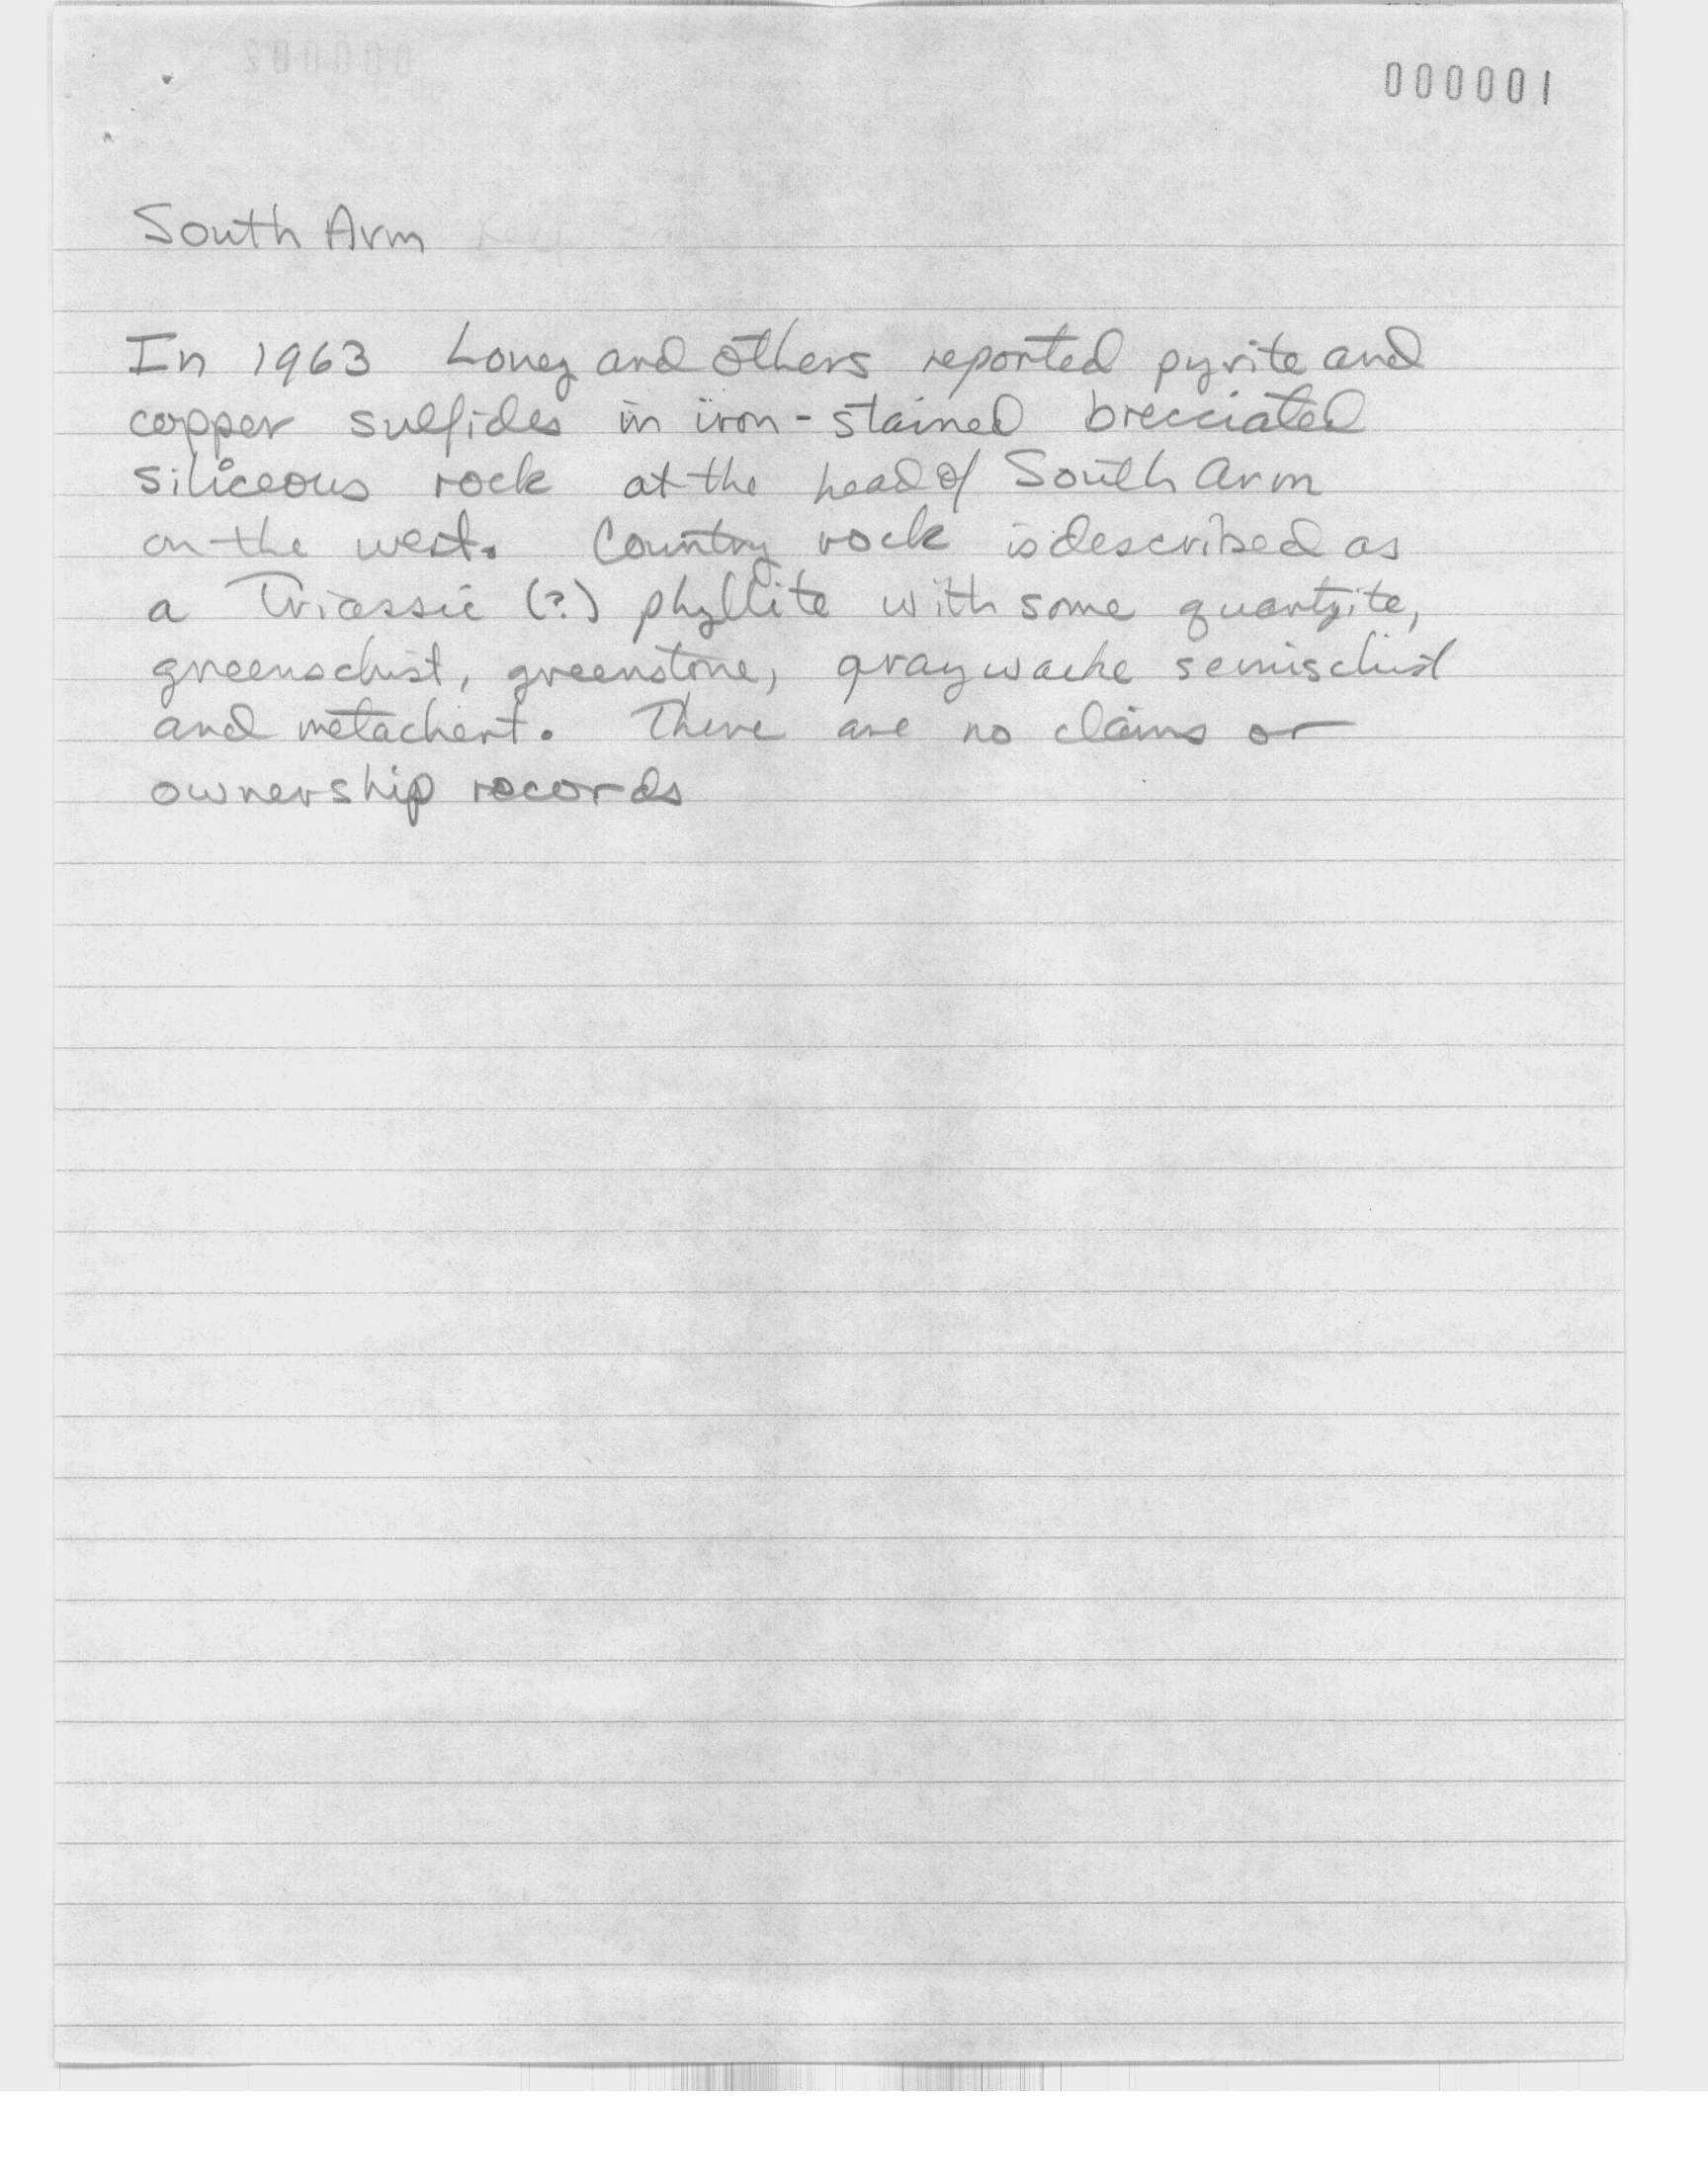 000001
South Arm
In 1963 Loney and others reported pyrite and
copper sulfides in iron-stained brecciated
siliceous rock at the head of South Arm
on the west. Country rock is described as
a Triassic (?) phyllite with some quartzite,
greenschist, greenstone, graywacke semischist
and metachert. There are no claims or
ownership records